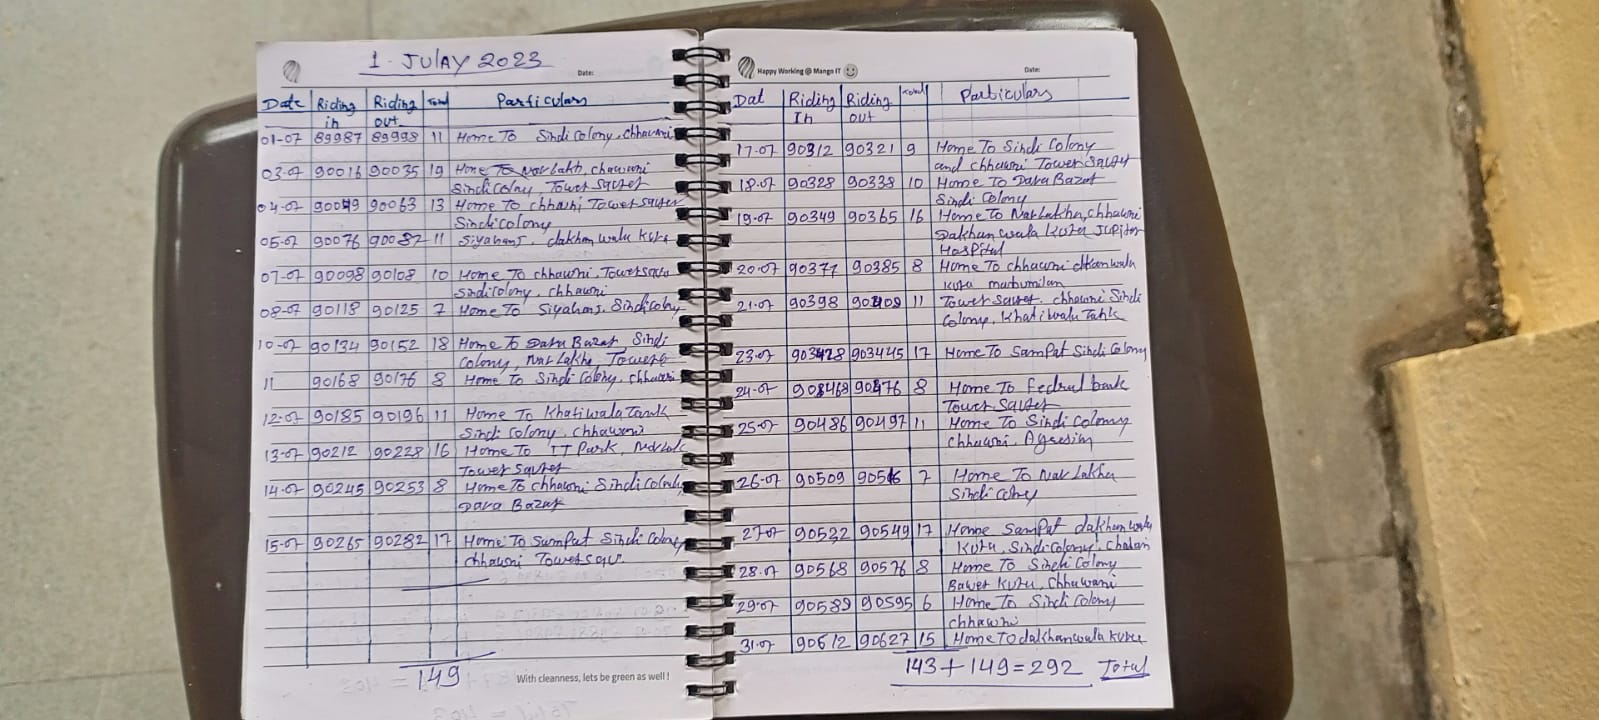 1. JULAY 2023
Date:
Date Riding in Riding out Total Particulars
01-07 89987 89998 11 Home To Sindi Colony, Chhawni
03-07 90016 90035 19 Home To NavLakh, chawni
Sindi Colny, Tower Sqver
04-07 90049 90063 13 Home To chhawni Tower Sqver
Sindi Colony
05-07 90076 90087 11 Siyahanj, dakhan wala Kuva
07-07 90098 90108 10 Home To chhawni, Tower Sqve
Sndi Colony, Chhawni
08-07 90118 90125 7 Home To Siyahanj, Sindi Colny
10-07 90134 90152 18 Home To Dava Bazar, Sindi
Colony, Nav Lakha, Tower
11 90168 90176 8 Home To Sindi Colony, chhawni
12-07 90185 90196 11 Home To Khatiwala Tank
Sindi Colony, Chhawni
13-07 90212 90228 16 Home To IT Park, Navlak
Tower Sqver
14-07 90245 90253 8 Home To chhawni Sindi Colony
Dava Bazar
15-07 90265 90282 17 Home To Sampat Sindi Colony
chhawni Tower sqv.
149
With cleanness, lets be green as well !
Happy Working @ Mango IT
Date:
Dat Riding In Riding out Total Particulars
17-07 90312 90321 9 Home To Sindi Colony
and chhawni Tower Sqver
18-07 90328 90338 10 Home To Dava Bazar
Sindi Colony
19-07 90349 90365 16 Home To Nav Lakha, chhawni
Dakhan wala Kuva Jupiter
Hospital
20-07 90377 90385 8 Home To chhawni dkan wala
kuva
21-07 90398 90409 11 Tower Sqver, chhawni Sindi
Colony, Khatiwala Tank
23-07 903428 903445 17 Home To Sampat Sindi Colony
24-07 908468 90476 8 Home To Fedrul bank
Tower Sqver
25-07 90486 90497 11 Home To Sindi Colony
Chhawni, Agresim
26-07 90509 90516 7 Home To Nav Lakha
Sindi Colny
27-07 90532 90549 17 Home Sampat dakhan wala
Kuva, Sindi Colony,
28-07 90568 90576 8 Home To Sindi Colony
Kuva, Chhawani
29-07 90589 90595 6 Home To Sindi Colony
chhawni
31-07 90612 90627 15 Home To dakhanwala Kuva
143+149=292 Total